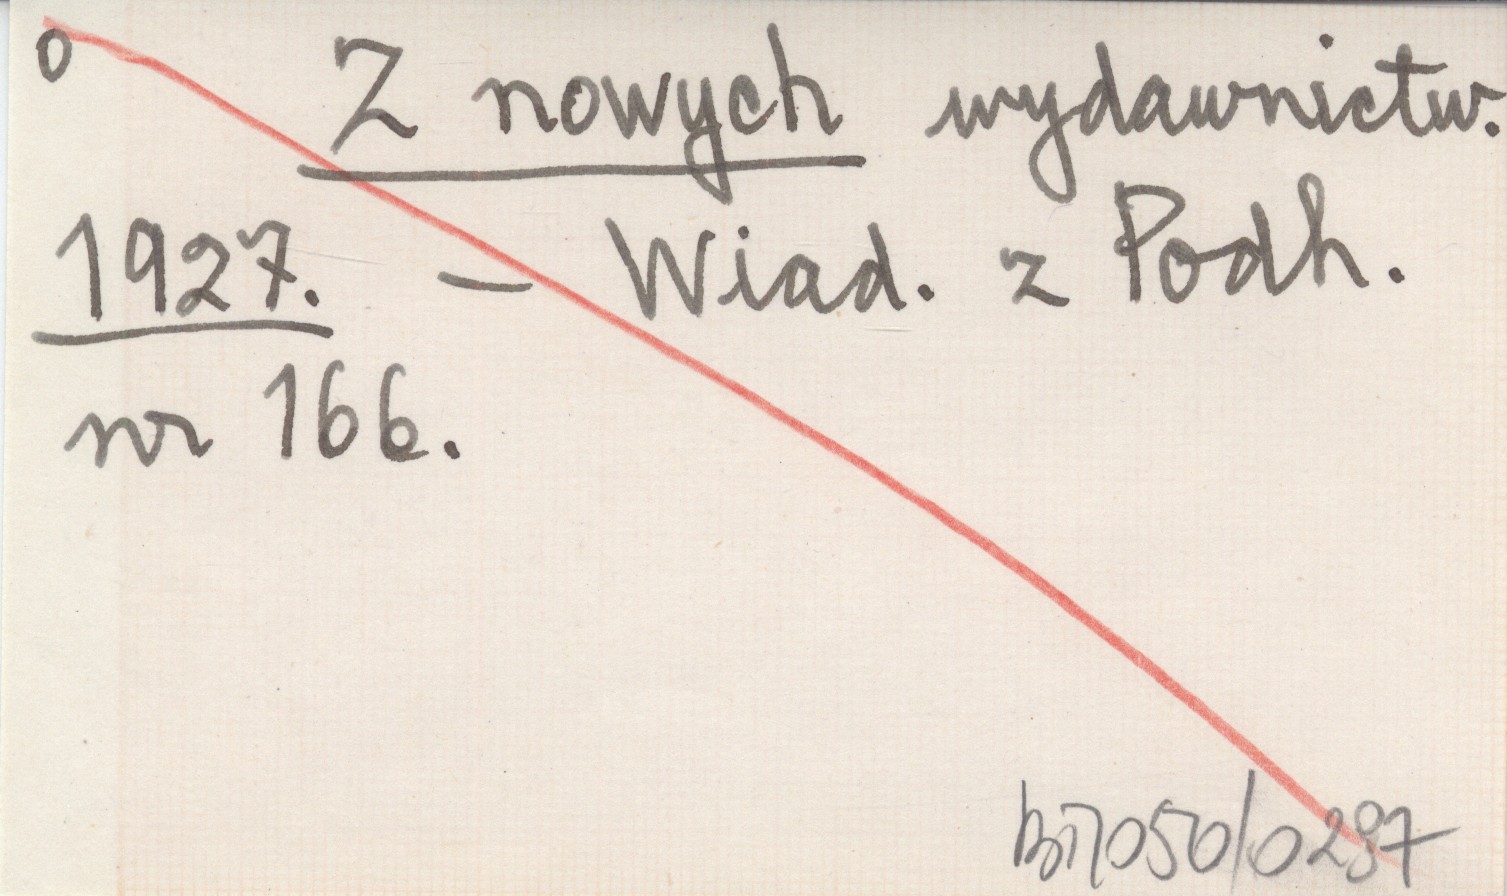 o Z nowych wydawnictw.
1927. — Wiad. z Podh.
nr 166.
bi7050/0287